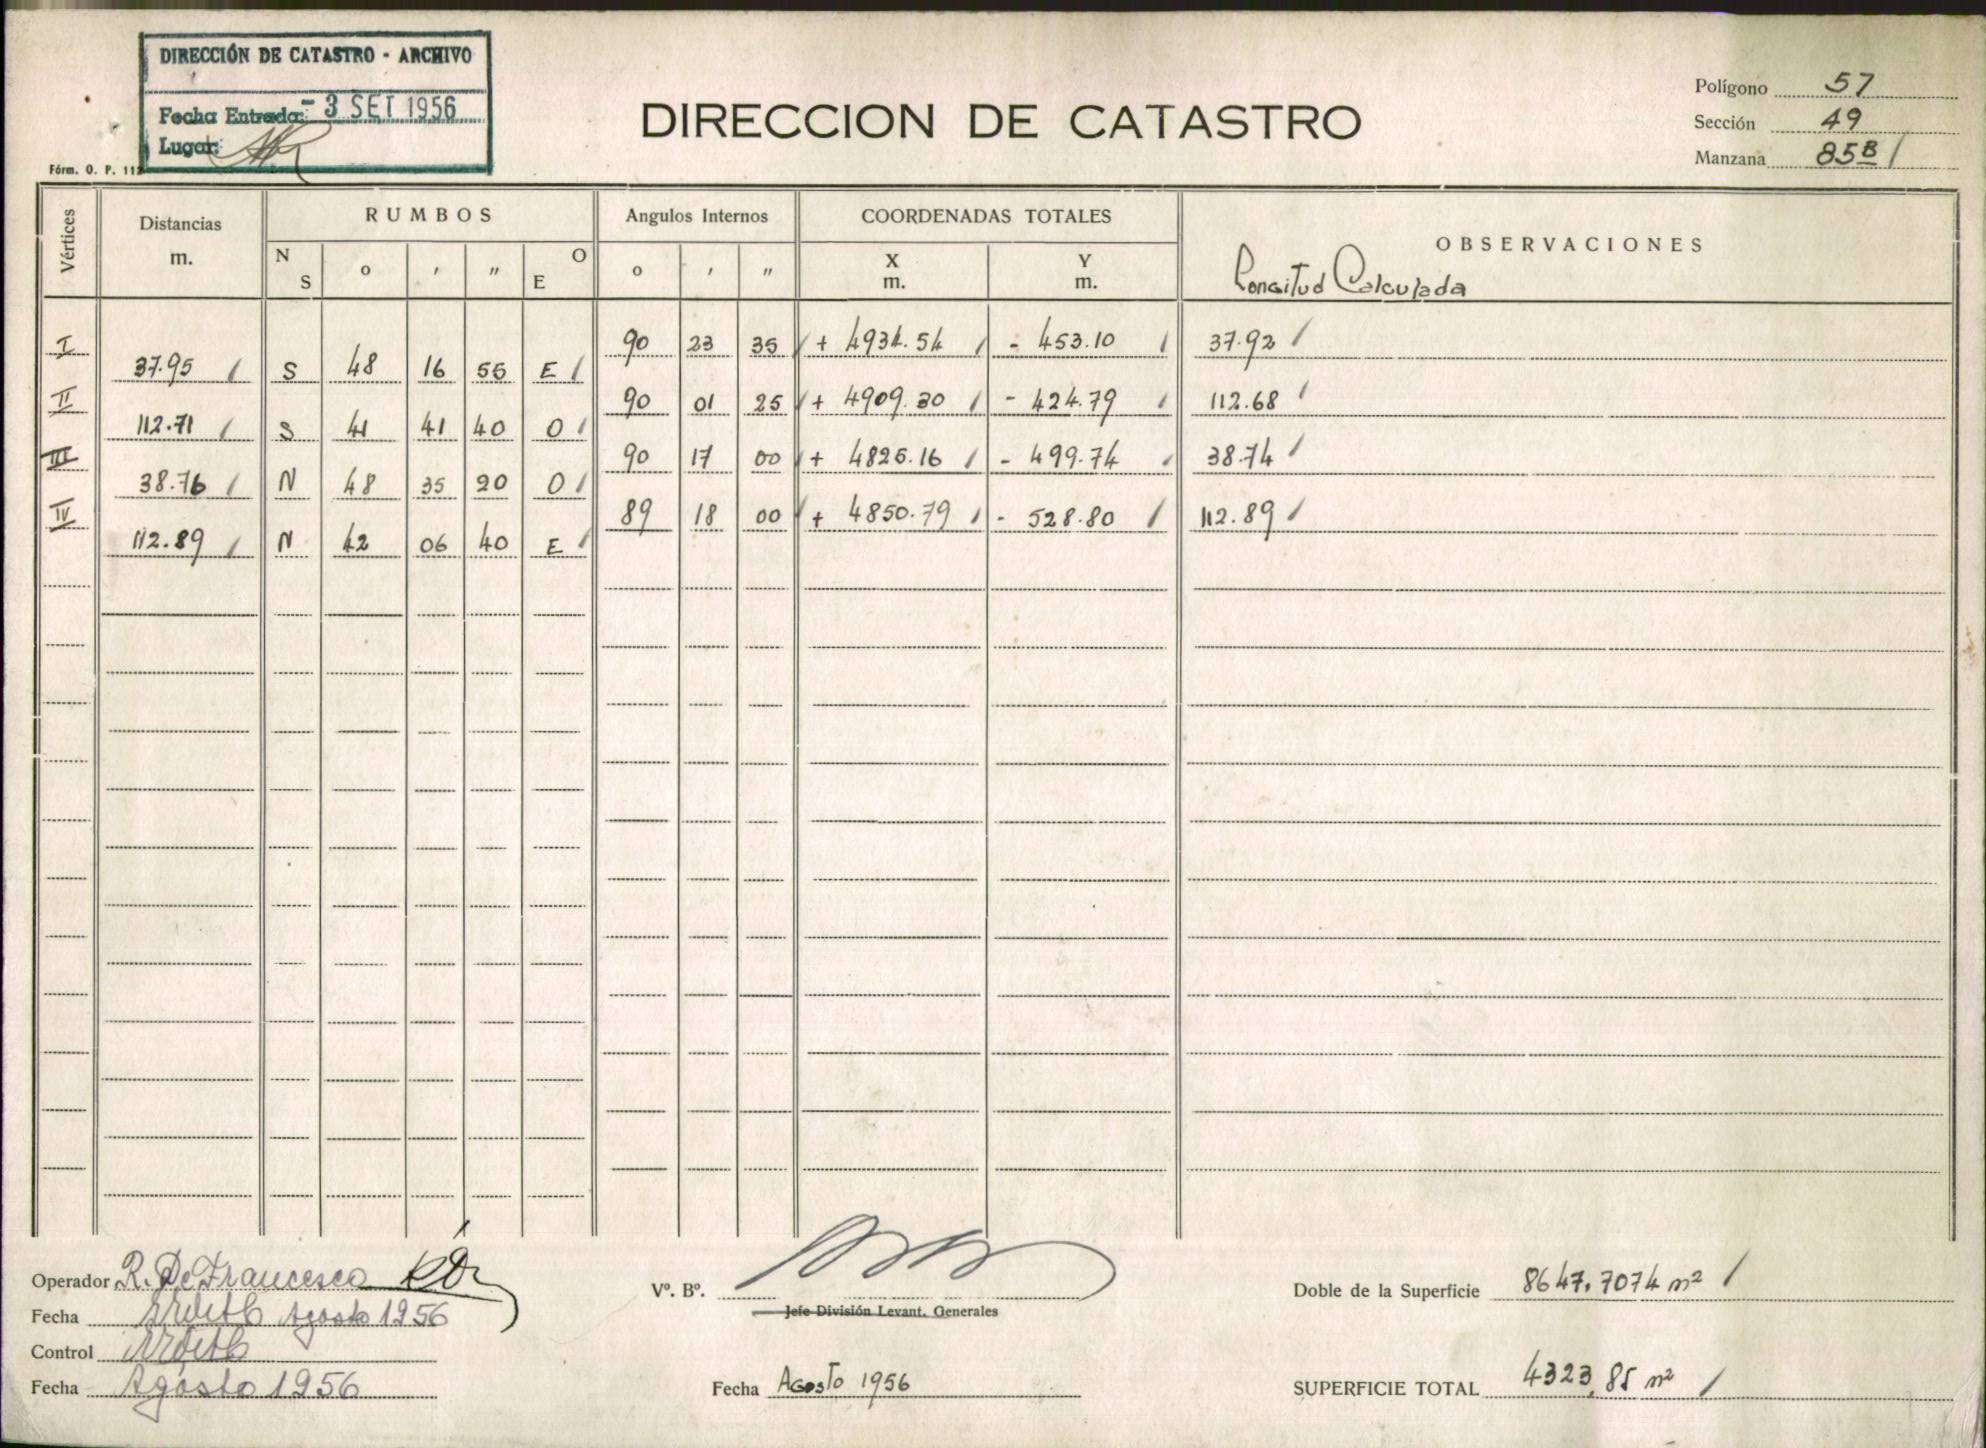 DIRECCIÓN DE CATASTRO - ARCHIVO
Fecha Entrada: - 3 SET 1956
Lugar:
Fórm. O. P. 112
DIRECCION DE CATASTRO
Polígono 57
Sección 49
Manzana 85B
Vértices Distancias m. RUMBOS Angulos Internos COORDENADAS TOTALES OBSERVACIONES
N S o ' " O E o ' " X m. Y m. Longitud Calculada
I 90 23 35 + 4934.54 - 453.10 37.92
37.95 S 48 16 55 E
II 90 01 25 + 4909.30 - 424.79 112.68
112.71 S 41 41 40 O
III 90 17 00 + 4825.16 - 499.74 38.74
38.76 N 48 35 20 O
IV 89 18 00 + 4850.79 - 528.80 112.89
112.89 N 42 06 40 E
Operador R. De Francesco
Fecha Agosto 1956
Control
Fecha Agosto 1956
Vº. Bº.
Jefe División Levant. Generales
Fecha Agosto 1956
Doble de la Superficie 8647.7074 m²
SUPERFICIE TOTAL 4323,85 m²